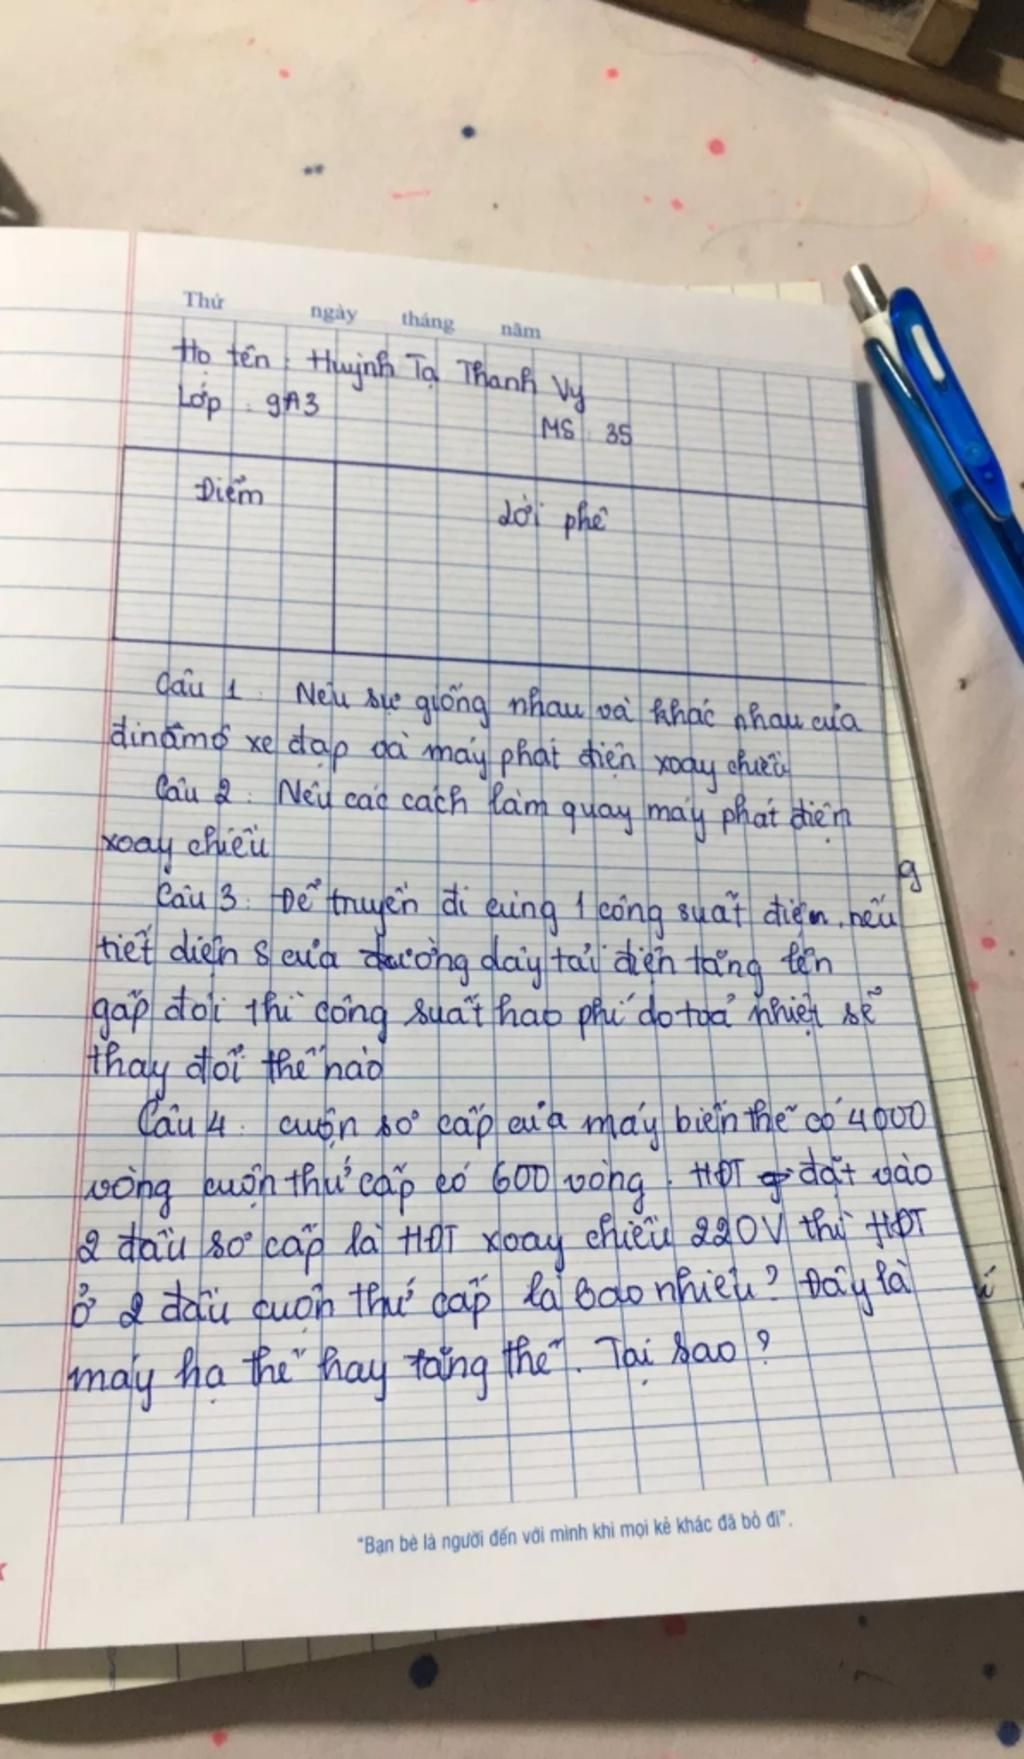 Thứ ngày tháng năm
Họ tên : Huỳnh Tạ Thanh Vy
Lớp : 9A3
MS : 35
Điểm
Lời phê
Câu 1 : Nêu sự giống nhau và khác nhau của
đinamô xe đạp và máy phát điện xoay chiều
Câu 2 : Nêu các cách làm quay máy phát điện
xoay chiều
g
Câu 3 : Để truyền đi cùng 1 công suất điện, nếu
tiết diện S của đường dây tải điện tăng lên
gấp đôi thì công suất hao phí do toả nhiệt sẽ
thay đổi thế nào
Câu 4 : cuộn sơ cấp của máy biến thế có 4000
vòng cuộn thứ cấp có 600 vòng . HĐT đặt vào
2 đầu sơ cấp là HĐT xoay chiều 220V thì HĐT
ở 2 đầu cuộn thứ cấp là bao nhiêu ? Đây là
máy hạ thế hay tăng thế . Tại sao ?
"Bạn bè là người đến với mình khi mọi kẻ khác đã bỏ đi".